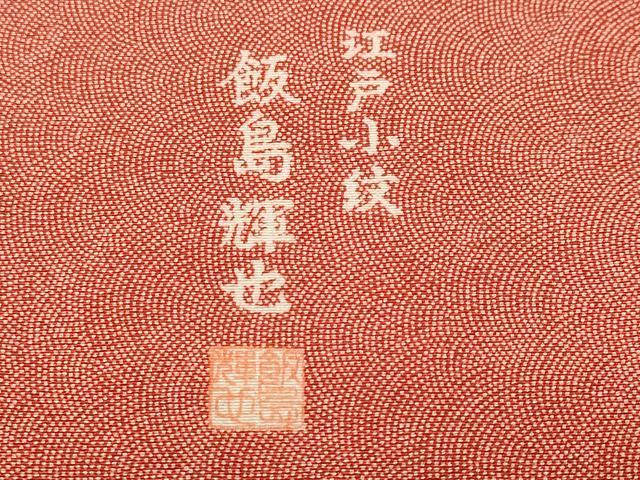 江戸小紋
飯島輝也
飯島
輝也